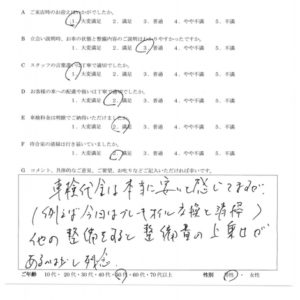 A ご来店時のお出迎えはいかがでしたか。
1. 大変満足 2. 満足 3. 普通 4. やや不満 5. 不満
B 立会い説明時、お車の状態と整備内容のご説明はわかりやすかったですか。
1. 大変満足 2. 満足 3. 普通 4. やや不満 5. 不満
C スタッフの言葉遣いは丁寧で適切でしたか。
1. 大変満足 2. 満足 3. 普通 4. やや不満 5. 不満
D お客様の車への配慮や扱いは丁寧で適切でしたか。
1. 大変満足 2. 満足 3. 普通 4. やや不満 5. 不満
E 車検料金は明瞭でご納得いただけましたか。
1. 大変満足 2. 満足 3. 普通 4. やや不満 5. 不満
F 待合室の清掃は行き届いていましたか。
1. 大変満足 2. 満足 3. 普通 4. やや不満 5. 不満
G コメント、具体的なご意見、ご要望、お叱りなどご記入いただければ幸いです。
車検代金は本当に安いと感じてますが、
(例えば今回はブレーキオイル交換と清掃)
他の整備をすると整備費の上乗せが
あるのは少し残念。
ご年齢 10代・20代・30代・40代・50代・60代・70代以上 性別 男性・女性